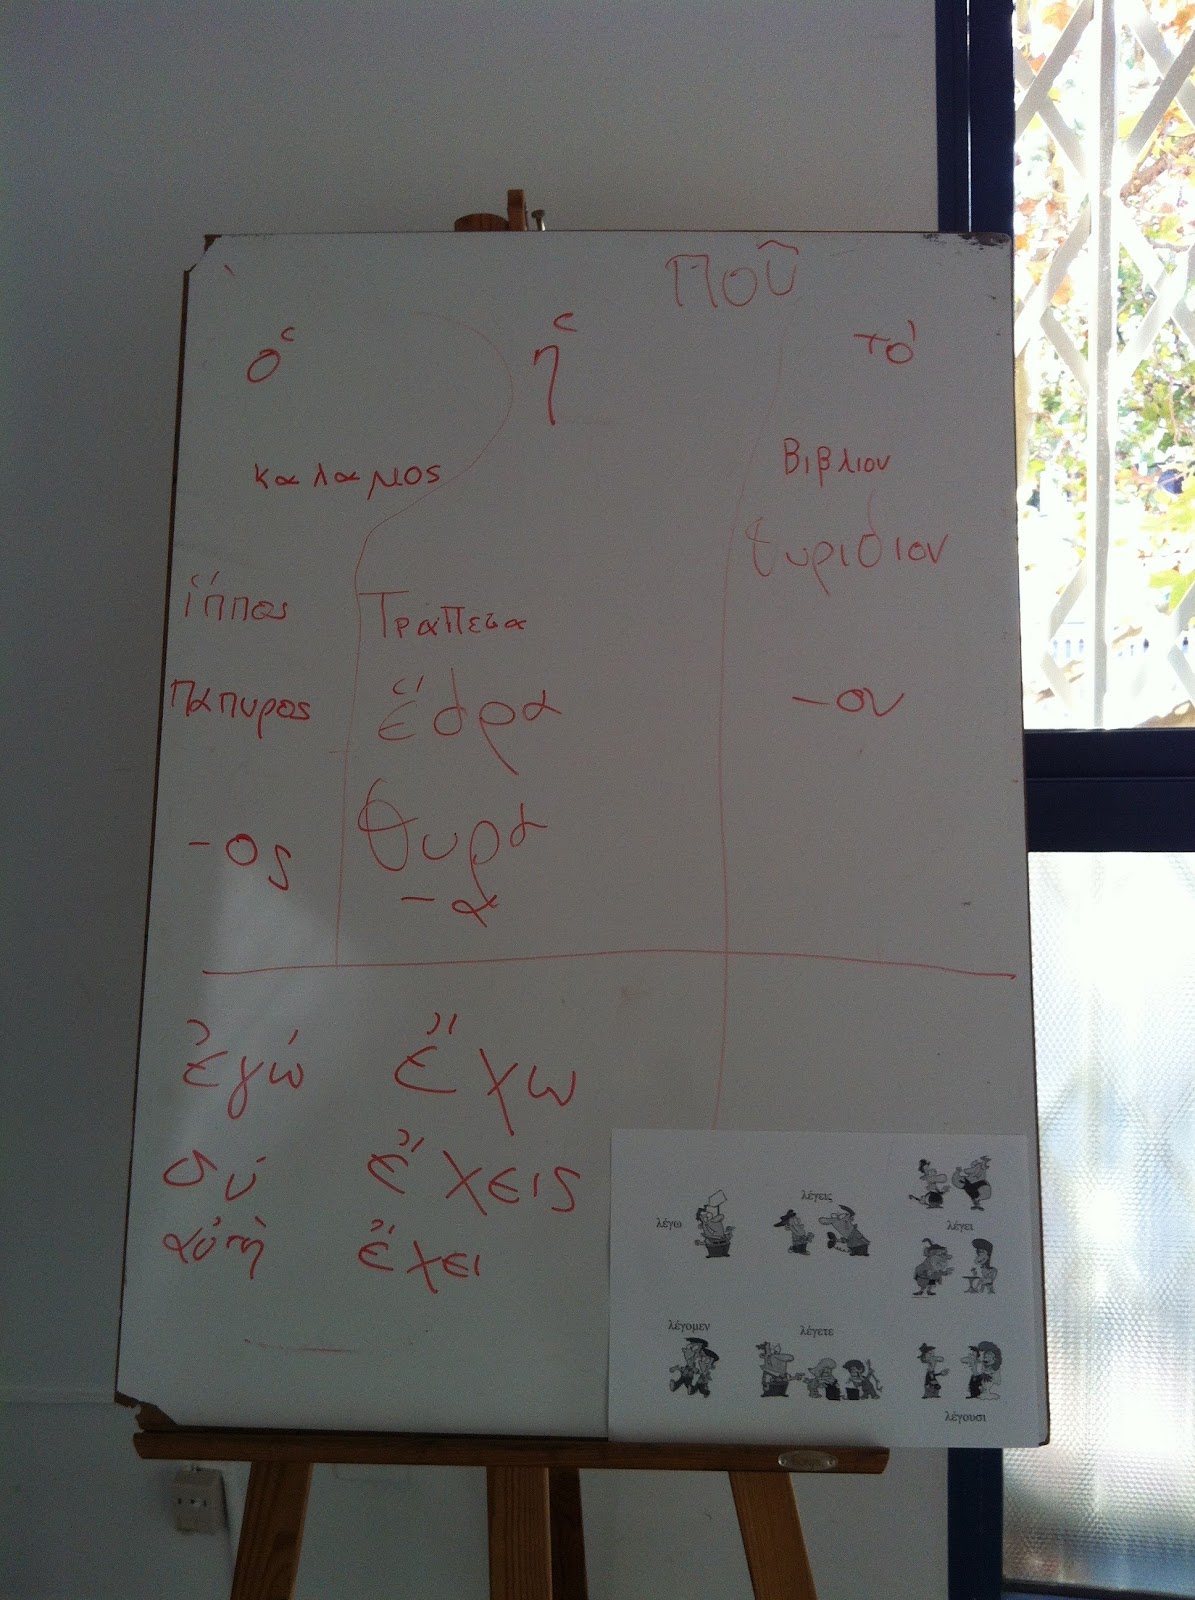 Ποῦ
ὁ ἡ τό
καλαμος Βιβλιον
θυριδιον
ἵππος Τραπεζα
παπυρος ἕδρα -ον
-ος θυρα
-α
ἐγώ ἔχω
σύ ἔχεις
αὐτὴ ἔχει
λέγω λέγεις λέγει
λέγομεν λέγετε λέγουσι